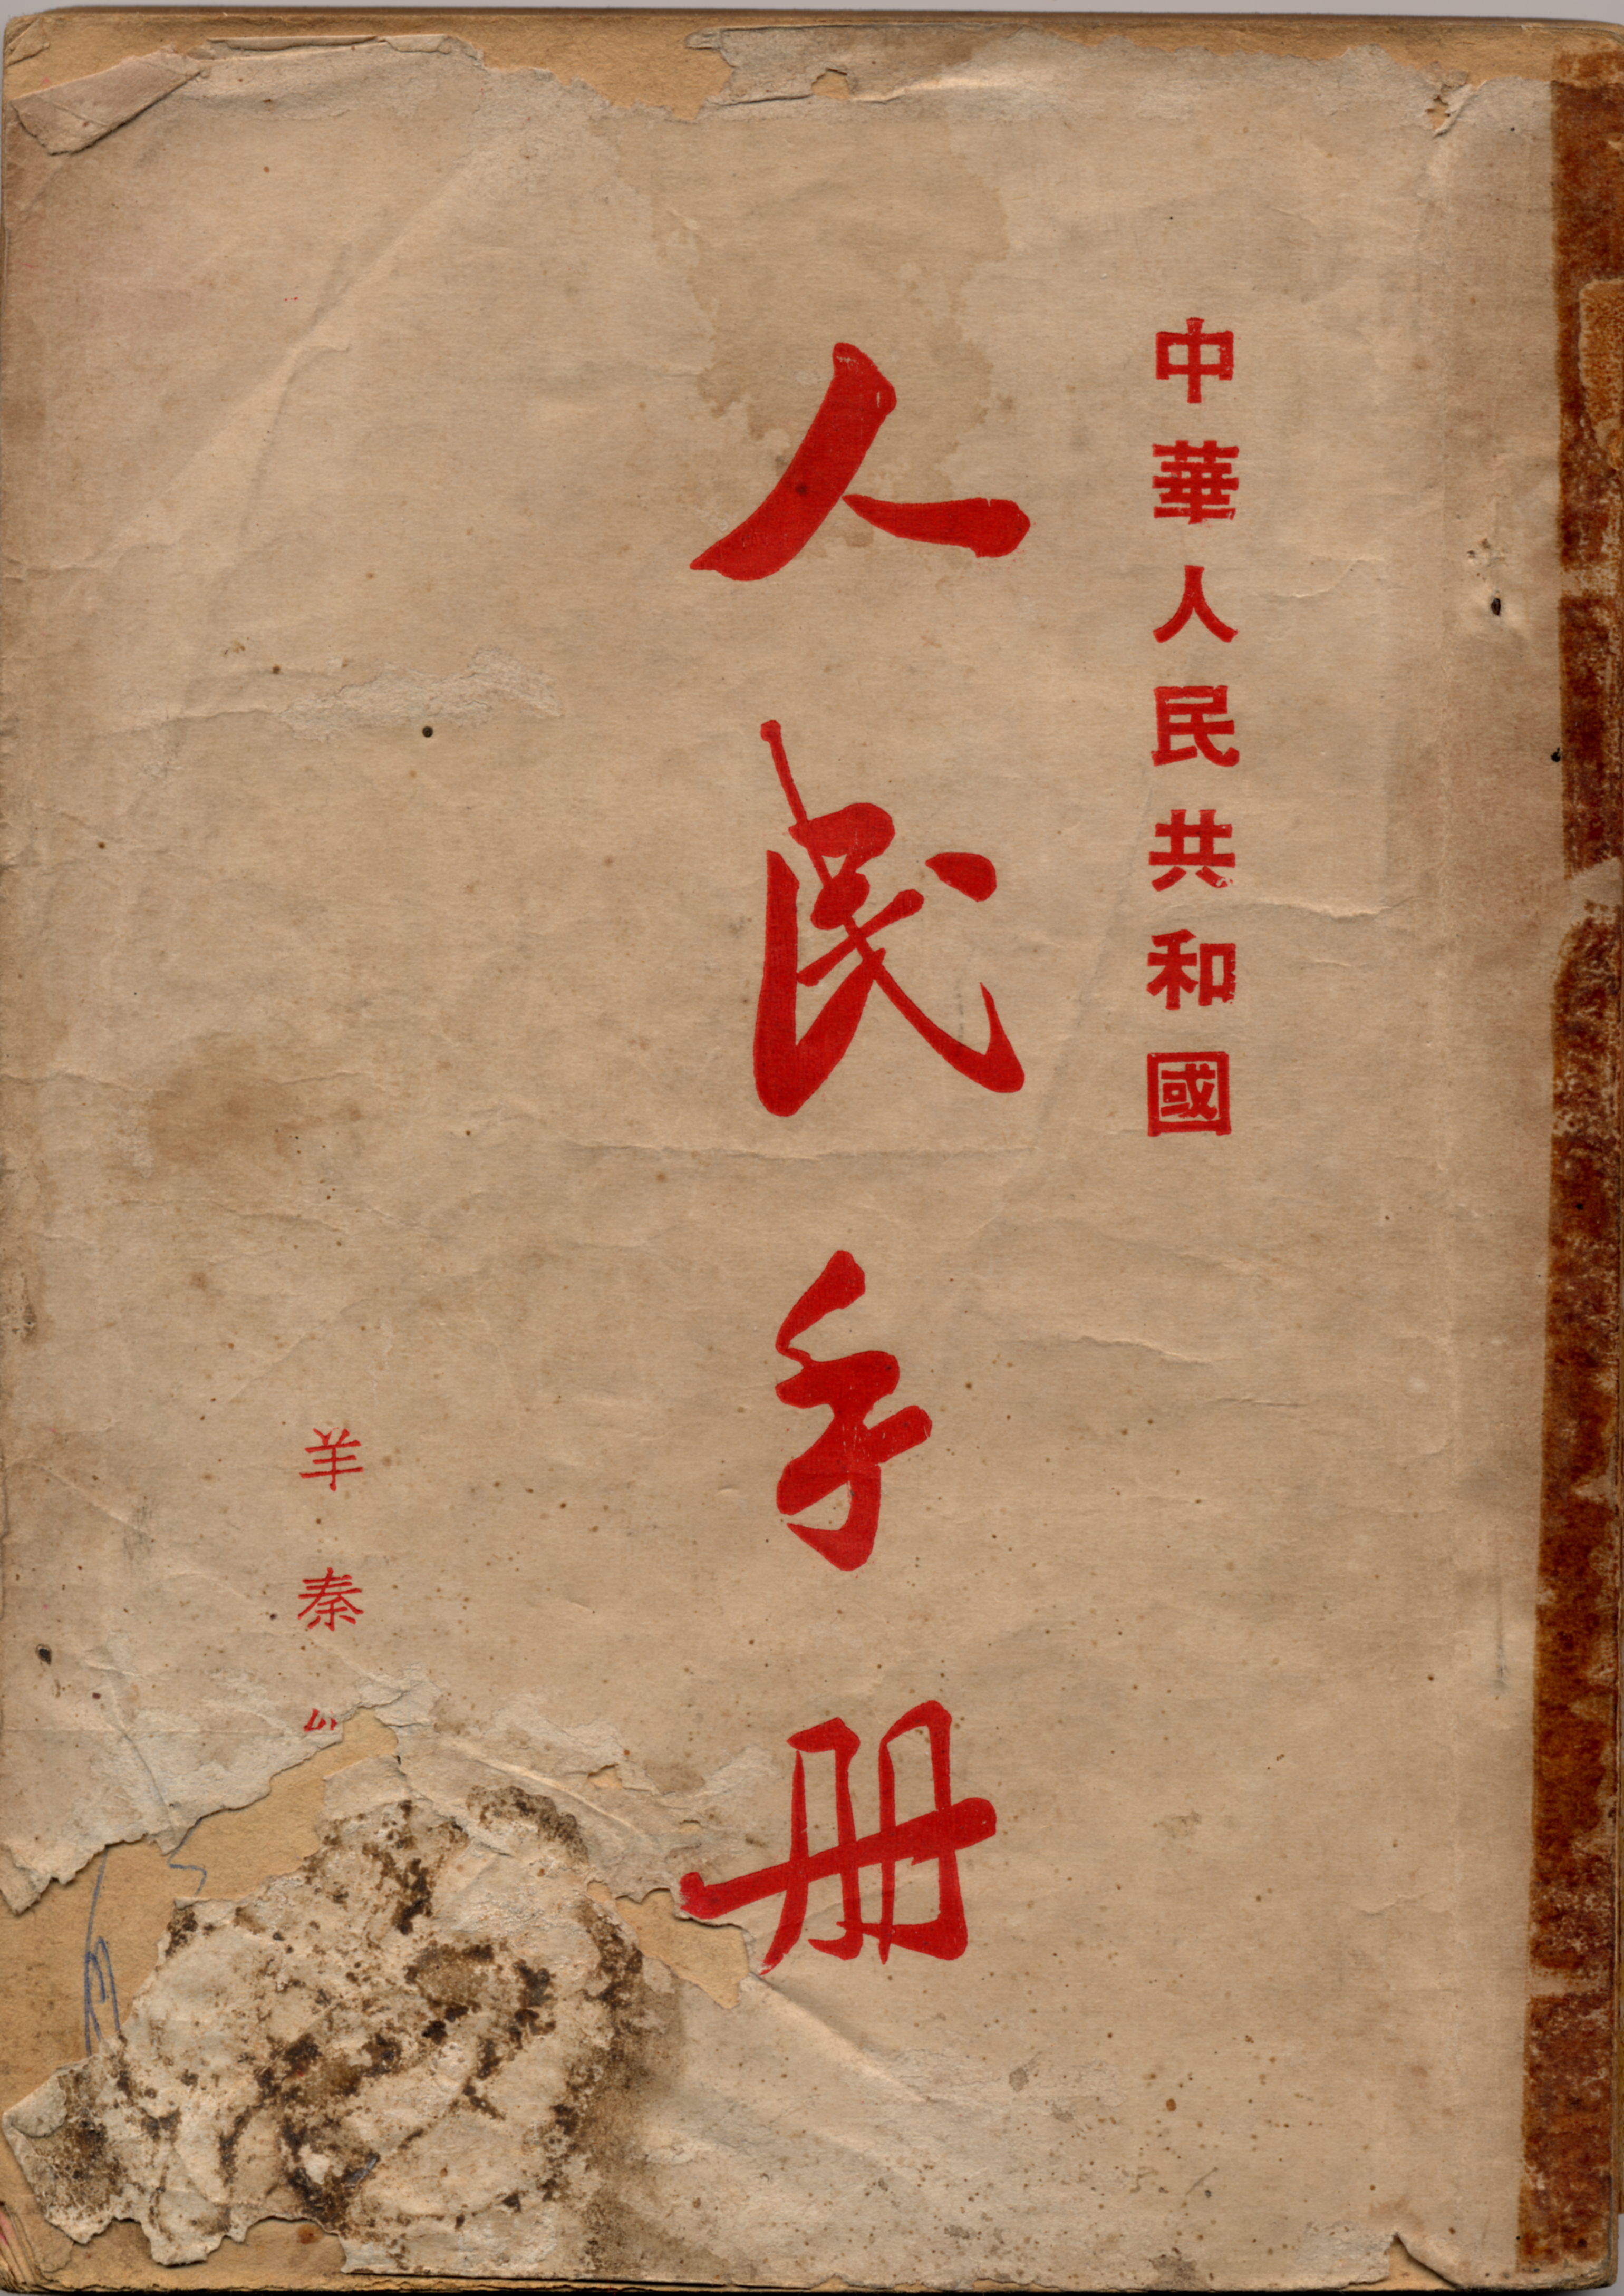 中華人民共和國
人民手册
羊秦